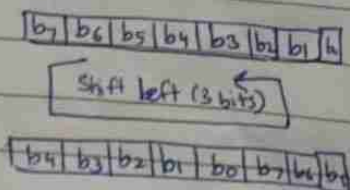 b7 b6 b5 b4 b3 b2 b1
Shift left (3 bits)
b4 b3 b2 b1 b0 b7 b6